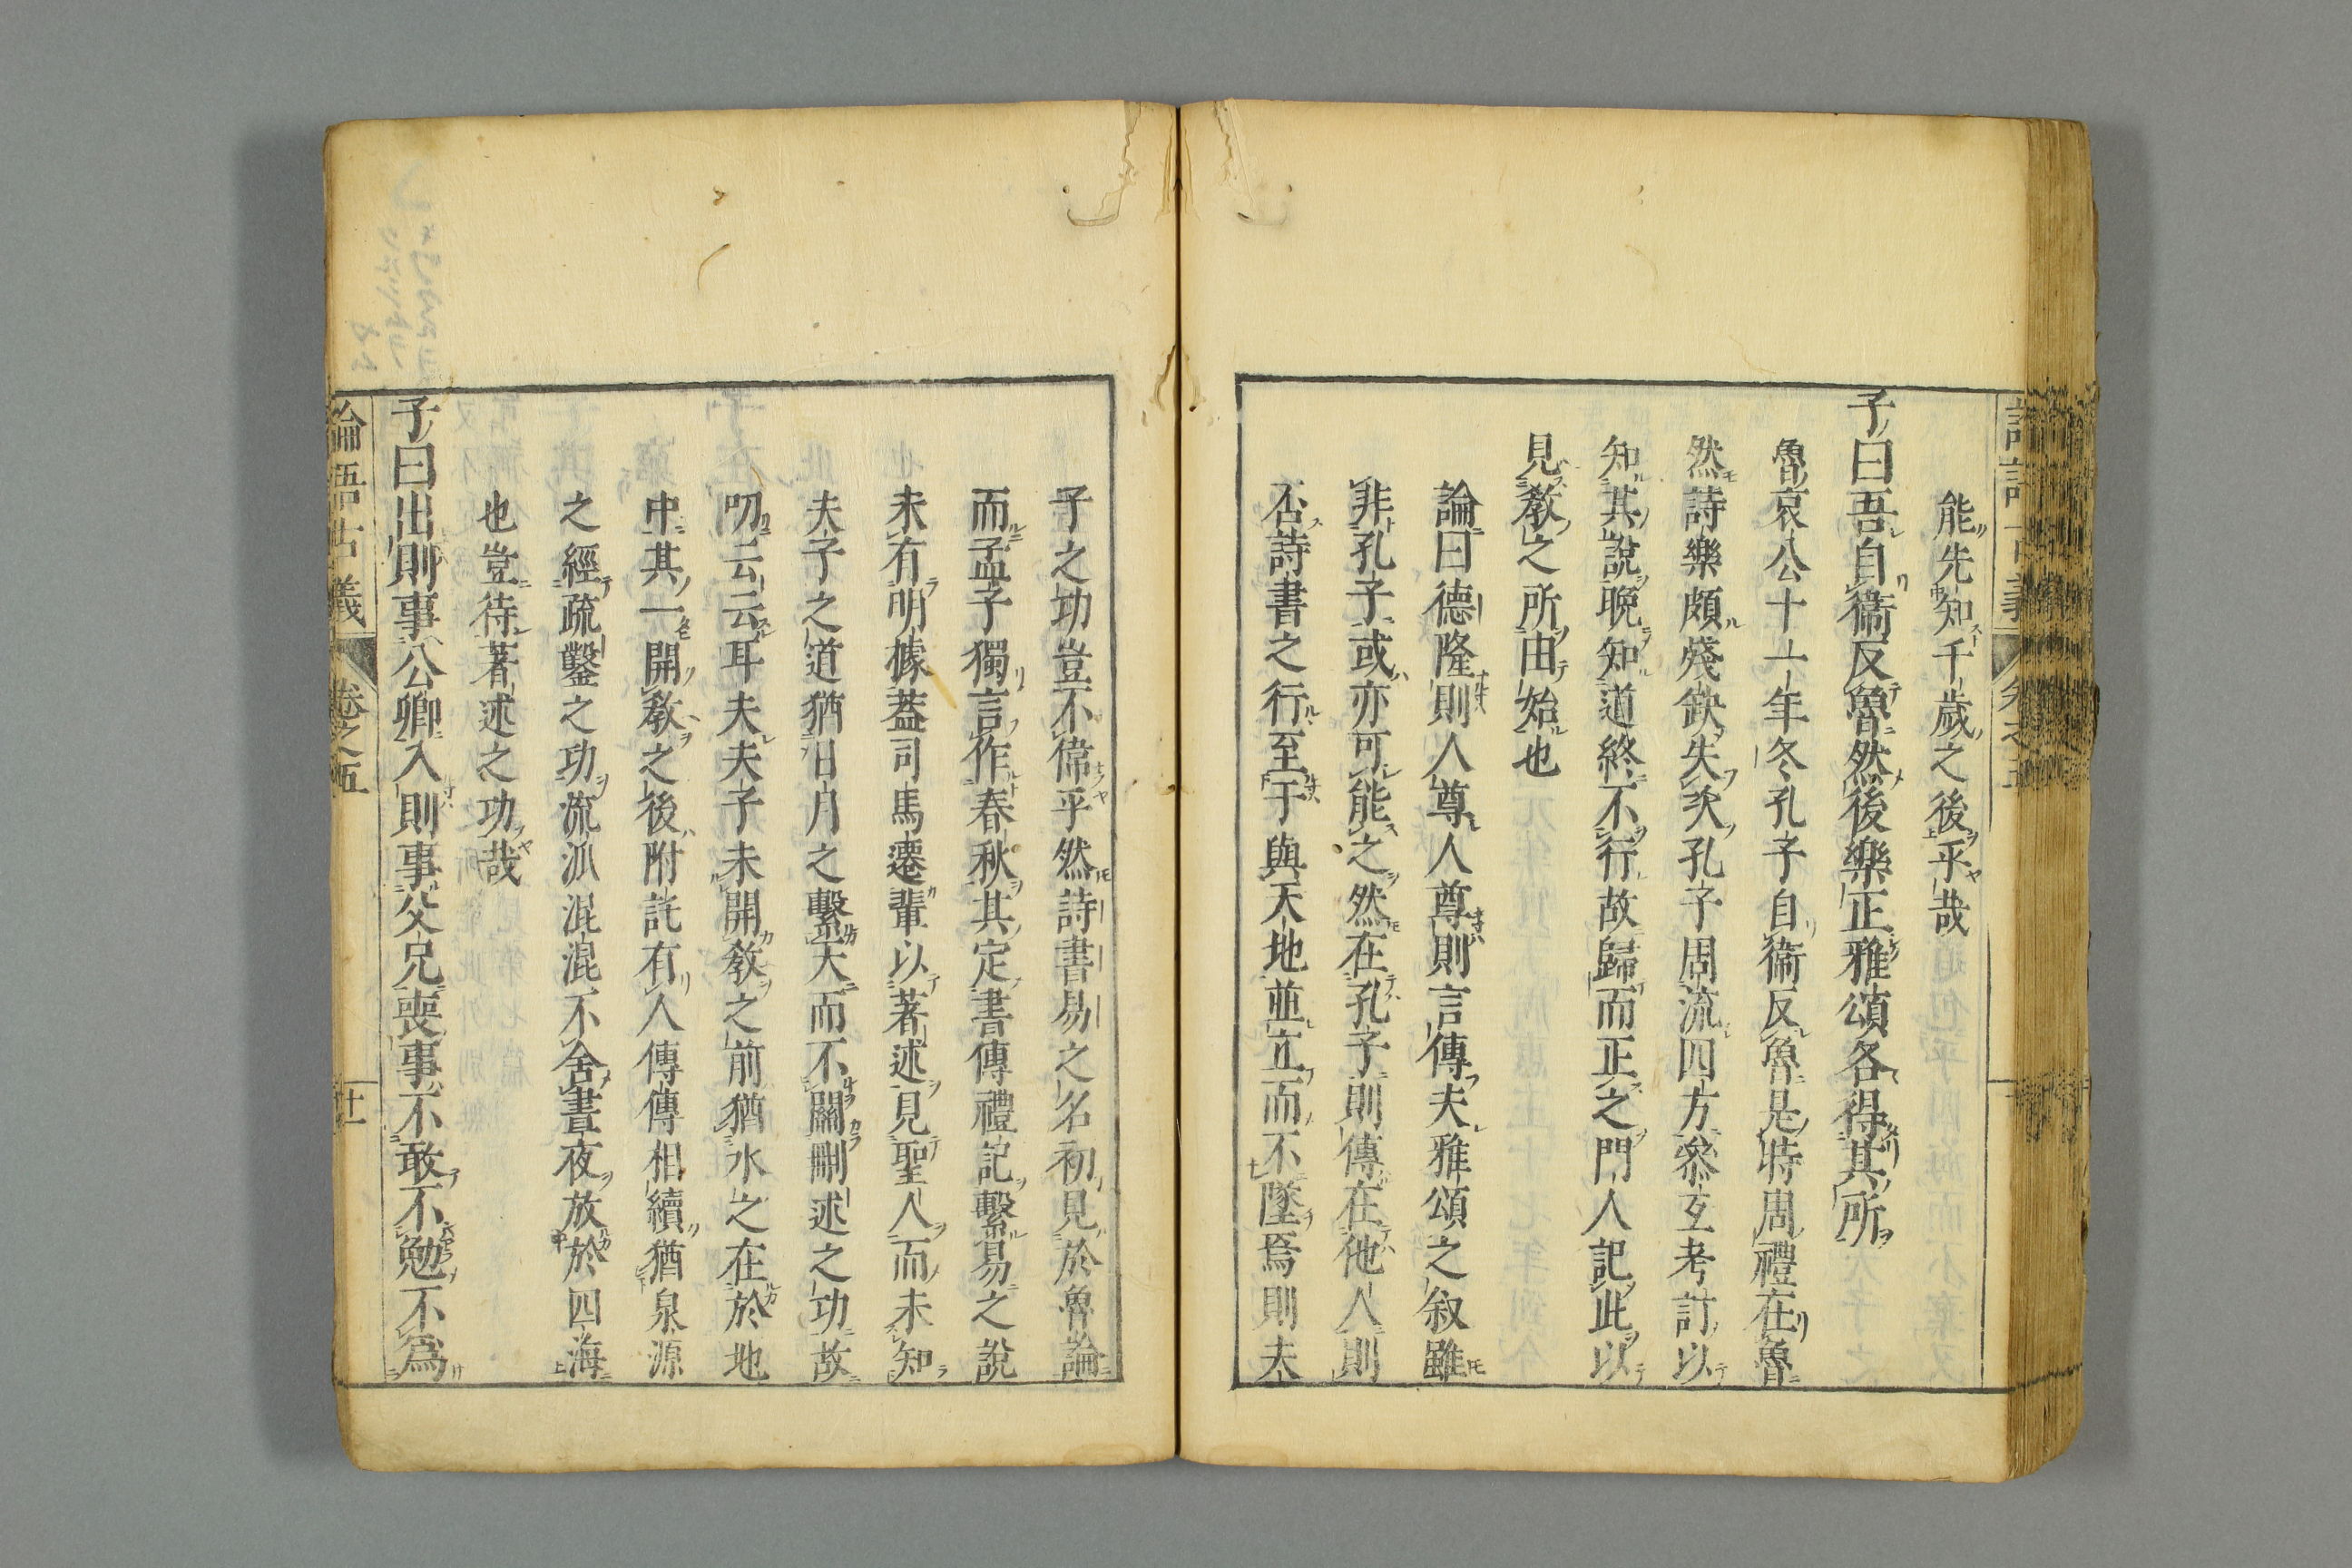 能先知千歳之後乎哉
子曰吾自衞反魯然後樂正雅頌各得其所
魯哀公十一年冬孔子自衞反魯是時周禮在魯
然詩樂頗殘缺失次孔子周流四方參互考訂以
知其說晩知道終不行故歸而正之門人記此以
見教之所由始也
論曰德隆則人尊人尊則言傳夫雅頌之叙雖
非孔子或亦可能之然在孔子則傳在他人則
否詩書之行至于與天地並立而不墜焉則夫
子之功豈不偉乎然詩書易之名初見於魯論
而孟子獨言作春秋其定書傳禮記繫易之說
未有明據蓋司馬遷輩以著述見聖人而未知
夫子之道猶日月之繫天而不關刪述之功故
叨云云耳夫夫子未開教之前猶水之在於地
中其一開教之後附託有人傳傳相續猶泉源
之經疏鑿之功流派混混不舍晝夜放於四海
也豈待著述之功哉
子曰出則事公卿入則事父兄喪事不敢不勉不爲
論語古義 卷之五 十一